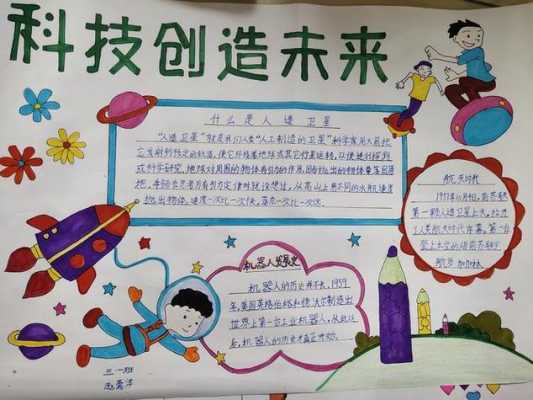 科技创造未来
什么是人造卫星
"人造卫星"就是我们人类"人工制造的卫星"科学家用火箭把
它发射到预定的轨道,使它环绕着地球或其它行星运转,以便进行探测
或科学研究。地球对周围的物体有引力的作用,因而抛出的物体要落回地
把,抛出物体,速度一次比一次快,落点一次比一次远
航天时代
1957年10月4日,前苏联
第一颗人造卫星上天,拉开
了人类航天时代序幕。第一台
登上太空的
航员加加林
机器人发展史
机器人的历史并不长,1959
年,美国英格伯格和德沃尔制造出
世界上第一台工业机器人,从此以
后,机器人的历史才真正开始。
三一班